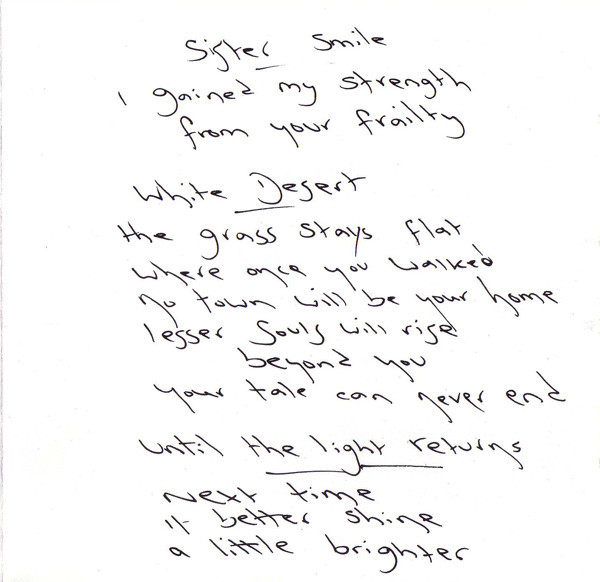 Sister Smile
I gained my strength
from your frailty
White Desert
the grass stays flat
where once you walked
no town will be your home
lesser souls will rise
beyond you
your tale can never end
until the light returns
Next time
it better shine
a little brighter